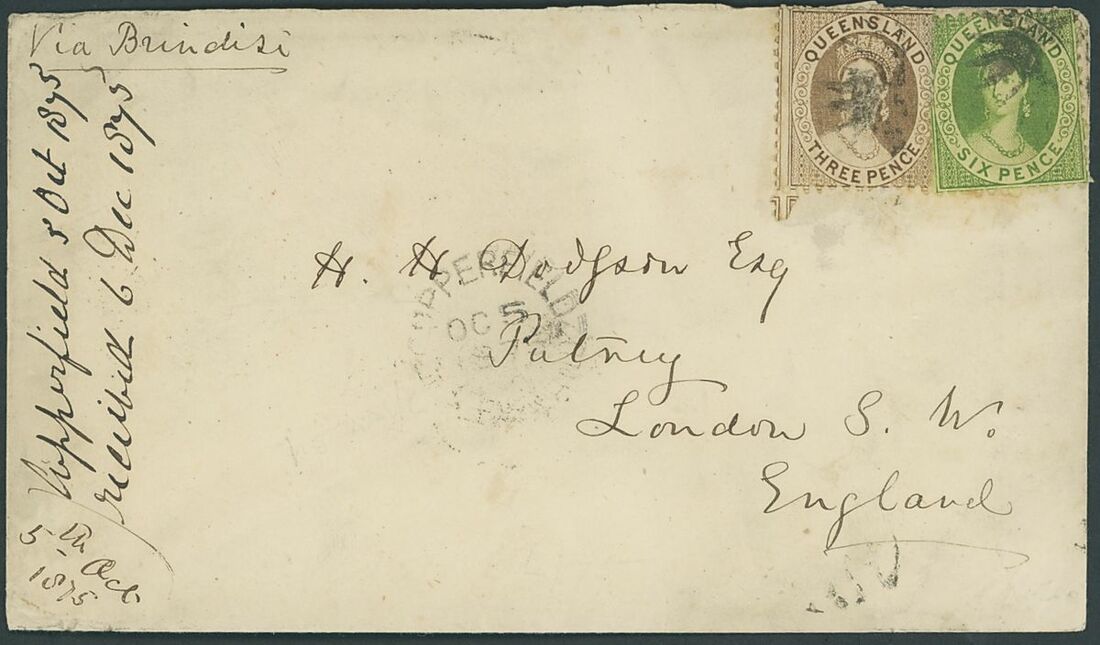 Via Brindisi
QUEENSLAND
THREE PENCE
QUEENSLAND
SIX PENCE
Copperfield 5 Oct 1875
received 6 Dec 1875
5th Oct
1875
COPPERFIELD
OC 5
H. H. Dodgson Esq
Putney
London S. W.
England